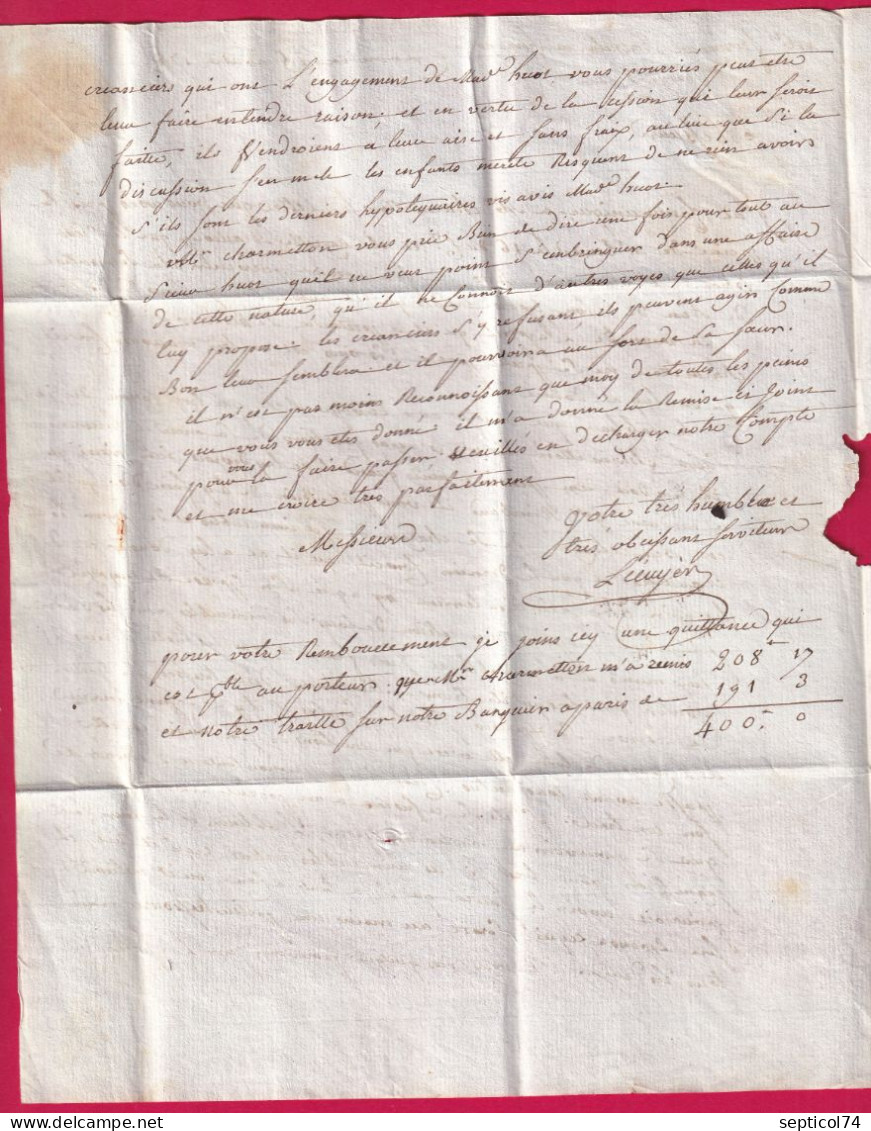 creanciers qui ont L'engagement de Mad.e huot vous pourriés peut etre
leur faire entendre raison, et en vertu de la cession qui leur seroit
faitte, ils Vendroient à leur aise et sans fraix, au lieu que si la
discussion s'en mele les enfants Risquent de ne rien avoir
s'ils sont les derniers hypotequaires vis avis Mad.e huot.
charmetton vous prie Bien de dire une fois pour tout au
Sieur huot qu'il ne veut point s'enbringuer dans une affaire
de cette nature, qu'il ne Connoit d'autres voyes que celles qu'il
luy propose. les creanciers s'y refusant, ils peuvent agir Comme
Bon leur semblera et il pourvoira au sort de sa soeur.
il n'est pas moins Reconnoissant que moy de toutes les peines
que vous vous etes donné il m'a donné la Remise ci Joint
pour vous la faire passer veuillés en decharger notre Compte
et me croire très parfaitement
Messieurs
Votre très humble et
très obeissant serviteur
L'écuyer
pour votre Remboucement je joins icy une quittance qui
est p.ble au porteur que Mr charmetton m'a remis 208 17
et notre traitte sur notre Banquier a paris de 191 3
400 0
septicol74